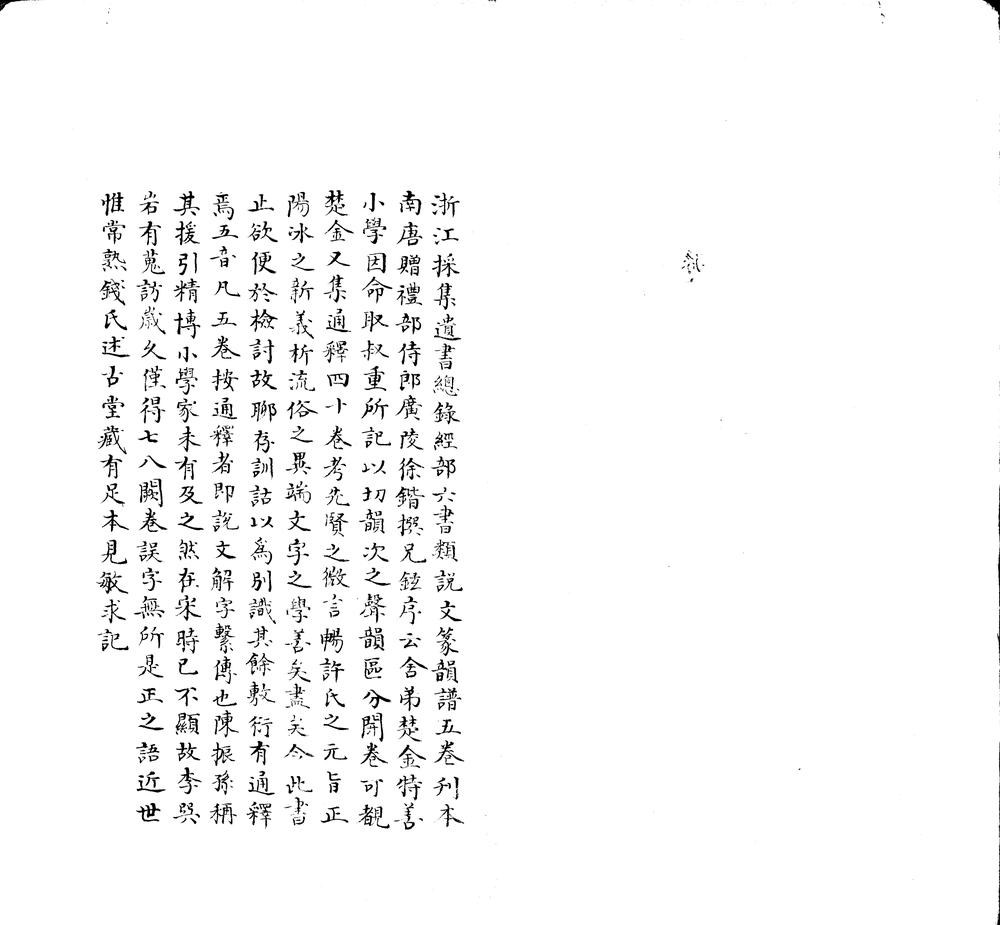 浙江採集遺書總錄經部六書類說文篆韻譜五卷刋本
南唐贈禮部侍郎廣陵徐鍇撰兄鉉序云舍弟楚金特善
小學因命取叔重所記以切韻次之聲韻區分開卷可覩
楚金又集通釋四十卷考先賢之微言暢許氏之元旨正
陽冰之新義析流俗之異端文字之學善矣盡矣今此書
止欲便於檢討故聊存訓詁以爲別識其餘敷衍有通釋
焉五音凡五卷按通釋者即說文解字繫傳也陳振孫稱
其援引精博小學家未有及之然在宋時已不顯故李巽
岩有蒐訪歲久僅得七八闕卷誤字無所是正之語近世
惟常熟錢氏述古堂藏有足本見敏求記